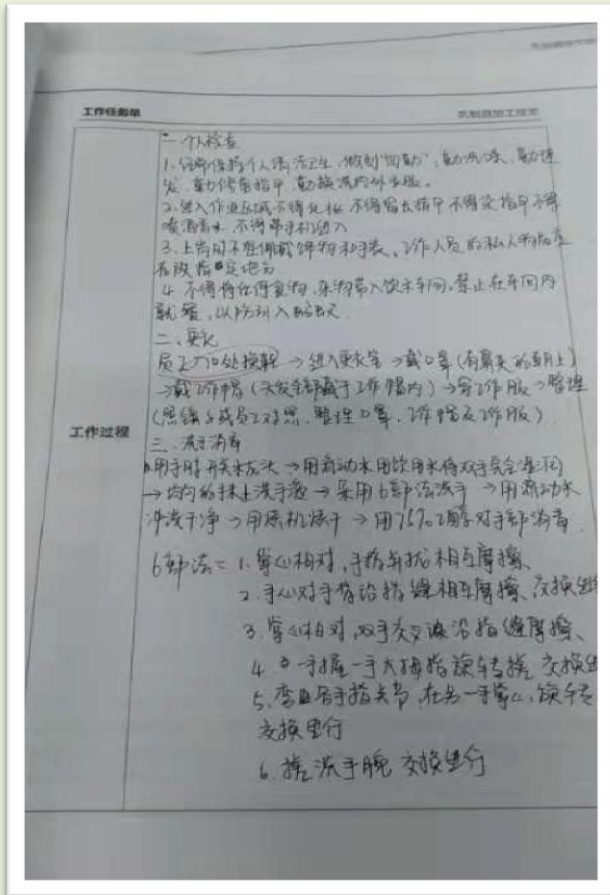 工作任务单 乳制品加工技术
一、个人检查
1.经常保持个人清洁卫生,做到"四勤",勤洗澡、勤理
发、勤修剪指甲、勤换洗内外衣服。
2.进入作业区域不得化妆 不得留长指甲 不得染指甲 不得
喷洒香水 不得带手机进入
3.上岗时不准佩戴饰物和手表,工作人员的私人物品应
存放指定地方
4.不得将任何食物、杂物带入饮水车间,禁止在车间内
就餐,以防引入
二、更衣
员工入口处换鞋→进入更衣室→戴口罩(有鼻夹的朝上)
→戴工作帽(头发全部藏于工作帽内)→穿工作服→整理
(照镜子或员工对照,整理口罩、工作帽及工作服)
工作过程
三、洗手消毒
用手肘开关水龙头→用流动水 用饮用水将双手完全湿润
→均匀的手抹上洗手液→采用6部法洗手→用流动水
冲洗干净→用烘机烘干→用75%乙醇对手部消毒
6部法= 1.掌心相对,手指并拢相互摩擦、
2.手心对手背沿指缝相互摩擦、交换进
3.掌心相对,双手交叉 沿指缝摩擦、
4. 一手握一手大拇指旋转搓 交换
5.弯曲各手指关节,在另一手掌心,旋转
交换进行
6.搓洗手腕 交换进行